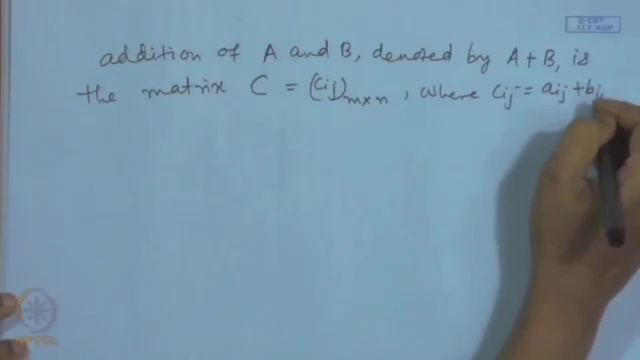 © CET
I.I.T. KGP
addition of A and B, denoted by A + B, is
the matrix C = (cij)m×n, where cij = aij + bij
NPTEL